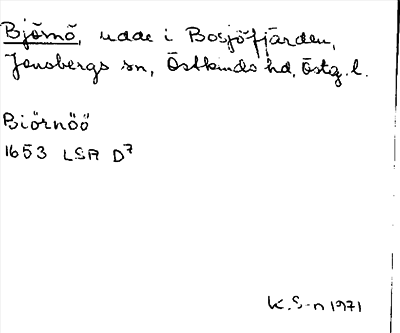 Björnö, udde i Bosjöfjärden,
Jonsbergs sn, Östkinds hd, Östg. l.
Biörnöö
1653 LSA D7
K. S-n 1971